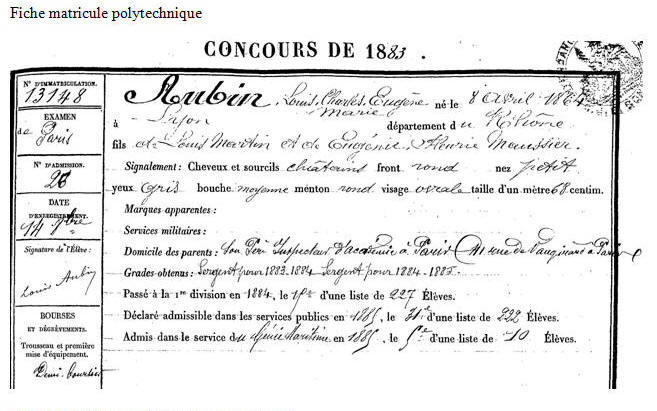 Fiche matricule polytechnique
CONCOURS DE 1883.
N° D'IMMATRICULATION.
13148
EXAMEN
de Paris
N° D'ADMISSION.
26
DATE
D'ENREGISTREMENT.
14 9bre
Signature de l'Élève:
Louis Aubin
BOURSES
ET DÉGRÈVEMENTS.
Trousseau et première
mise d'équipement.
Demi-boursier
Aubin, Louis, Charles, Eugène Marie né le 8 avril 1864
à Lyon département du Rhône
fils de Louis Martin et de Eugénie Fleurie Meussier.
Signalement: Cheveux et sourcils châtains front rond nez petit
yeux gris bouche moyenne menton rond visage ovale taille d'un mètre 68 centim.
Marques apparentes:
Services militaires:
Domicile des parents: Son Père Inspecteur d'académie à Paris (41 rue de Vaugirard à Paris
Grades obtenus: Sergent pour 1883-1884 Sergent pour 1884-1885.
Passé à la 1re division en 1884, le d'une liste de 227 Élèves.
Déclaré admissible dans les services publics en 1885, le 31e d'une liste de 222 Élèves.
Admis dans le service du Génie Maritime en 1885, le 5e d'une liste de 10 Élèves.